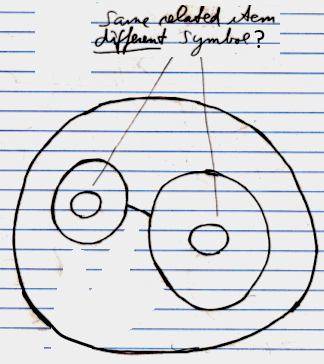 Same related item
different symbol?